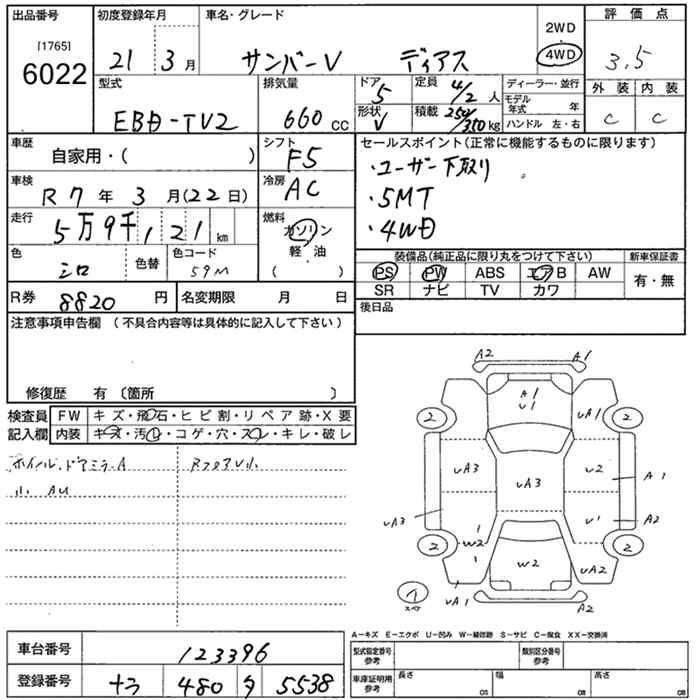 出品番号 初度登録年月 車名・グレード 2WD 評価点
[1765] 4WD
6022 21 3月 サンバーV ディアス 3.5
型式 排気量 ドア 定員 ディーラー・並行 外装 内装
5 4/2人
EBD-TV2 660cc 形状 積載 モデル年式 年 C C
V 250/350kg ハンドル 左・右
車歴 シフト セールスポイント(正常に機能するものに限ります)
自家用・( ) F5 ・ユーザー下取り
車検 冷房 ・5MT
R7年3月(22日) AC ・4WD
走行 燃料
5万9千121km ガソリン
軽・油
( )
色 色替 色コード 装備品(純正品に限り丸をつけて下さい) 新車保証書
シロ 59M PS PW ABS エアB AW 有・無
SR ナビ TV カワ
R券 8820円 名変期限 月 日 後日品
注意事項申告欄 (不具合内容等は具体的に記入して下さい)
修復歴 有 〔箇所 〕
検査員 FW キズ・飛石・ヒビ割・リペア跡・X要
記入欄 内装 キズ・汚レ・コゲ・穴・スレ・キレ・破レ
ホイル・ドアミラーA RフロアU小
小 AU
A2 A1
A1
U1
UA1
2 2
UA3 UA3 U2 A1
UA3 U1 A2
2 W2 W2 2
UA2
UA1 A2
A-キズ E-エクボ U-凹み W-補修跡 S-サビ C-腐食 XX-交換済
車台番号 123396 型式指定番号 参考 類別区分番号 参考
登録番号 480 5538 車庫証明用 参考 長さ cm 幅 cm 高さ cm